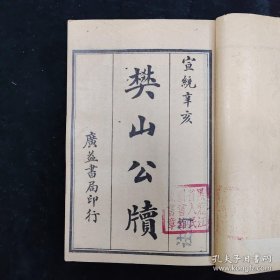 宣統辛亥
樊山公牘
廣益書局印行
孔夫子旧书网